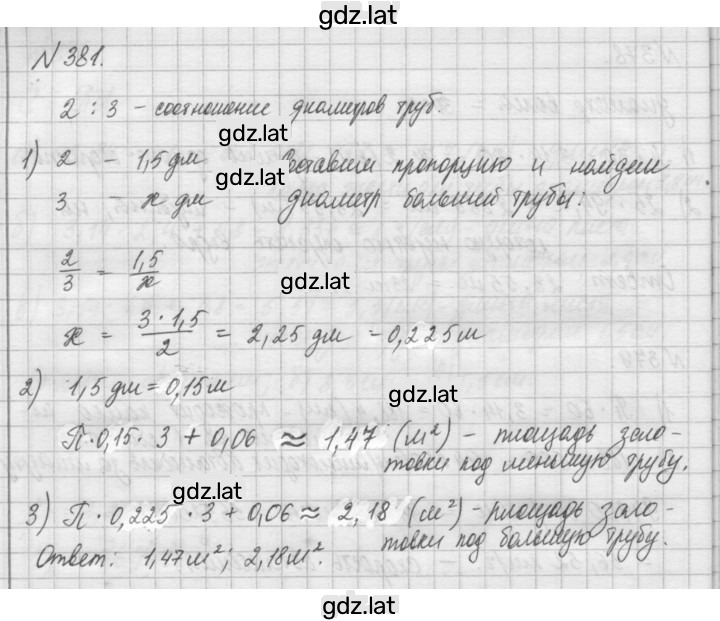 gdz.lat
N 381.
2 : 3 - соотношение диаметров труб.
gdz.lat
1) 2 - 1,5 дм Составим пропорцию и найдем
gdz.lat
3 - x дм диаметр большей трубы:
2/3 = 1,5/x
gdz.lat
x = 3 · 1,5 / 2 = 2,25 дм = 0,225 м
2) 1,5 дм = 0,15 м
gdz.lat
П · 0,15 · 3 + 0,06 ≈ 1,47 (м²) - площадь заго-
товки под меньшую трубу.
gdz.lat
3) П · 0,225 · 3 + 0,06 ≈ 2,18 (м²) - площадь заго-
товки под большую трубу.
Ответ: 1,47 м²; 2,18 м².
gdz.lat